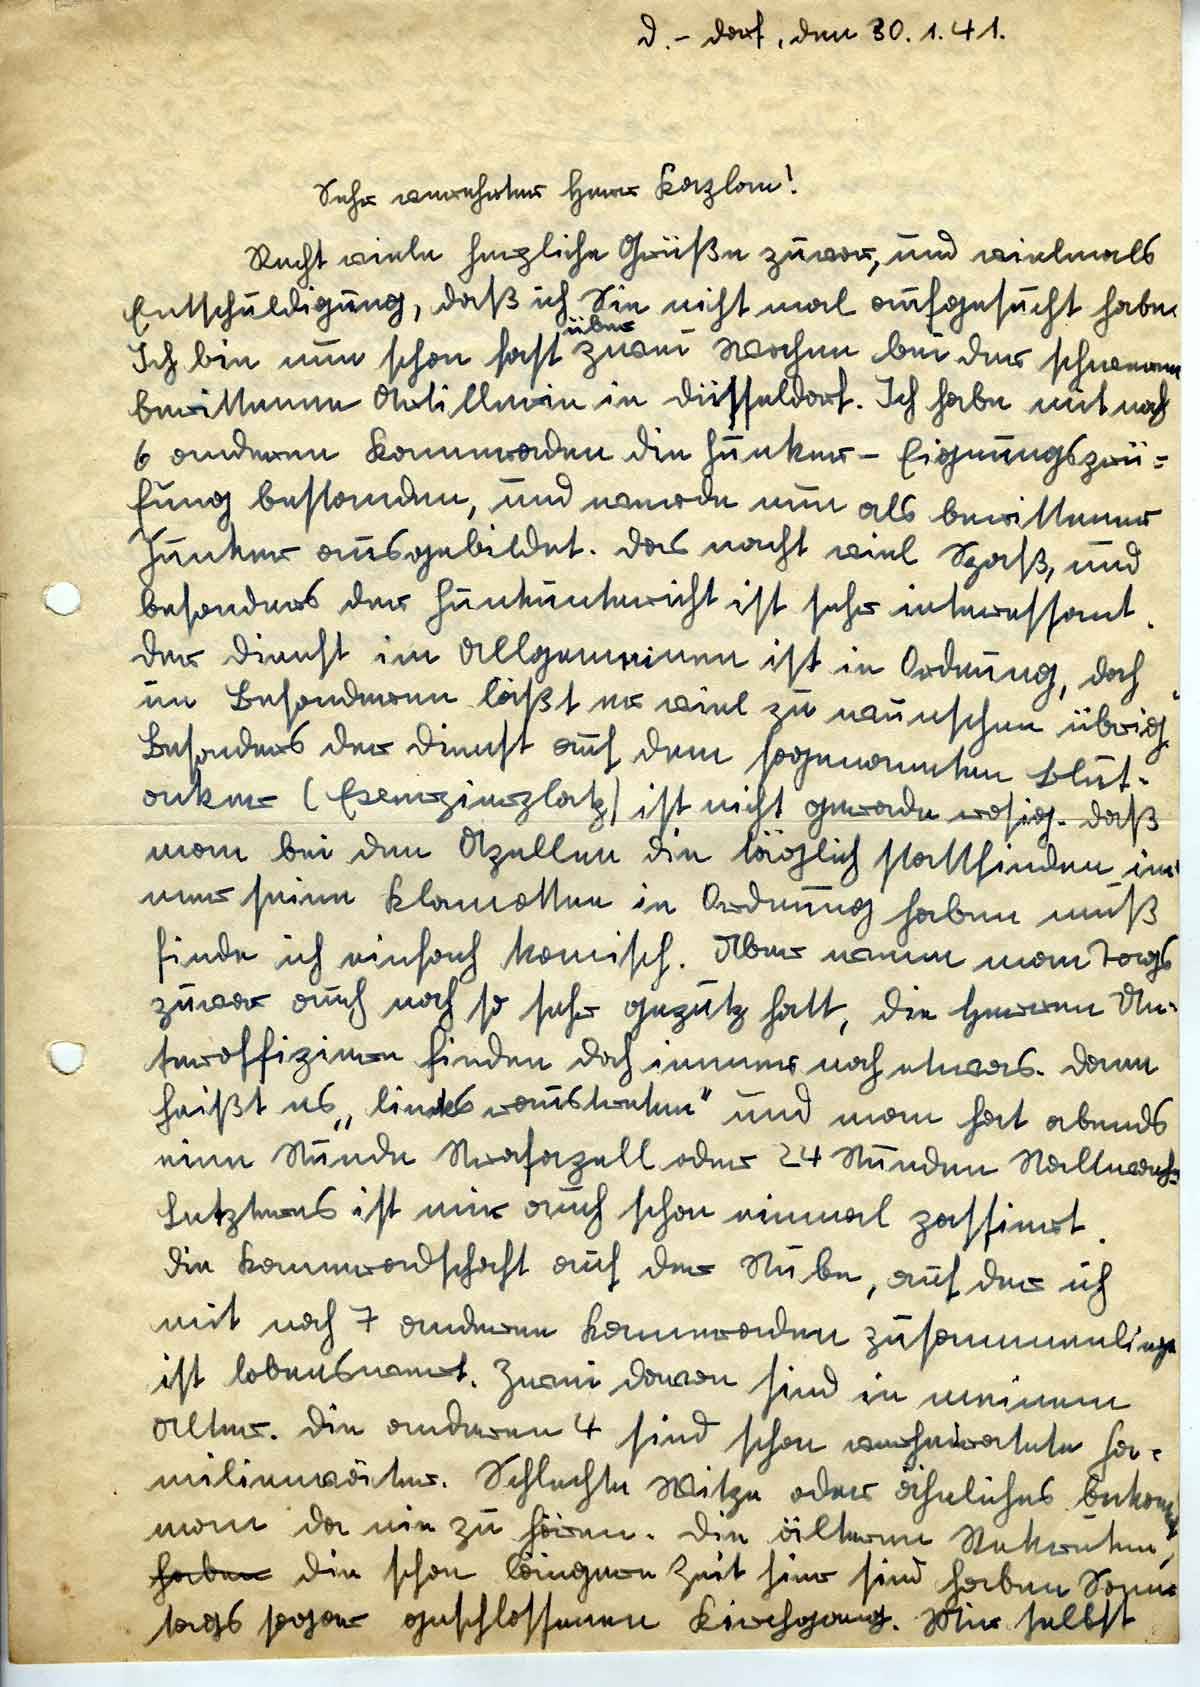 D.-dorf, den 30.1.41.
Sehr verehrter Herr Kaplan!
Recht viele herzliche Grüße zuvor, und vielmals
Entschuldigung, daß ich Sie nicht mal aufgesucht habe.
Ich bin nun schon fast über zwei Wochen bei der schweren
berittenen Artillerie in Düsseldorf. Ich habe mit noch
6 anderen Kameraden die Funker-Eignungsprü=
fung bestanden, und werde nun als berittener
Funker ausgebildet. Das macht viel Spaß, und
besonders der Funkunterricht ist sehr interessant.
Der Dienst im Allgemeinen ist in Ordnung, doch
im Besonderen läßt er viel zu wünschen übrig.
Besonders der Dienst auf dem sogenannten Blut-
anker (Exerzierplatz) ist nicht gerade rosig. Daß
man bei den Apellen die täglich stattfinden im
mer seine Klamotten in Ordnung haben muß
finde ich einfach komisch. Aber wenn man Tags
zuvor auch noch so sehr geputz hatt, die Herren Un-
teroffiziere finden doch immer noch etwas. Dann
heißt es „links raustreten" und man hat abends
eine Stunde Strafapell oder 24 Stunden Stallwache.
Letzteres ist mir auch schon einmal passiert.
Die Kameradschaft auf der Stube, auf der ich
mit noch 7 anderen Kameraden zusammenliege
ist lobenswert. Zwei davon sind in meinem
Alter. Die anderen 4 sind schon verheiratete Fa=
milienväter. Schlechte Witze oder ähnliches bekommt
man da nie zu hören. Die älteren Rekruten,
haben die schon längere Zeit hier sind haben Sonn=
tags sogar geschlossenen Kirchgang. Mir selbst